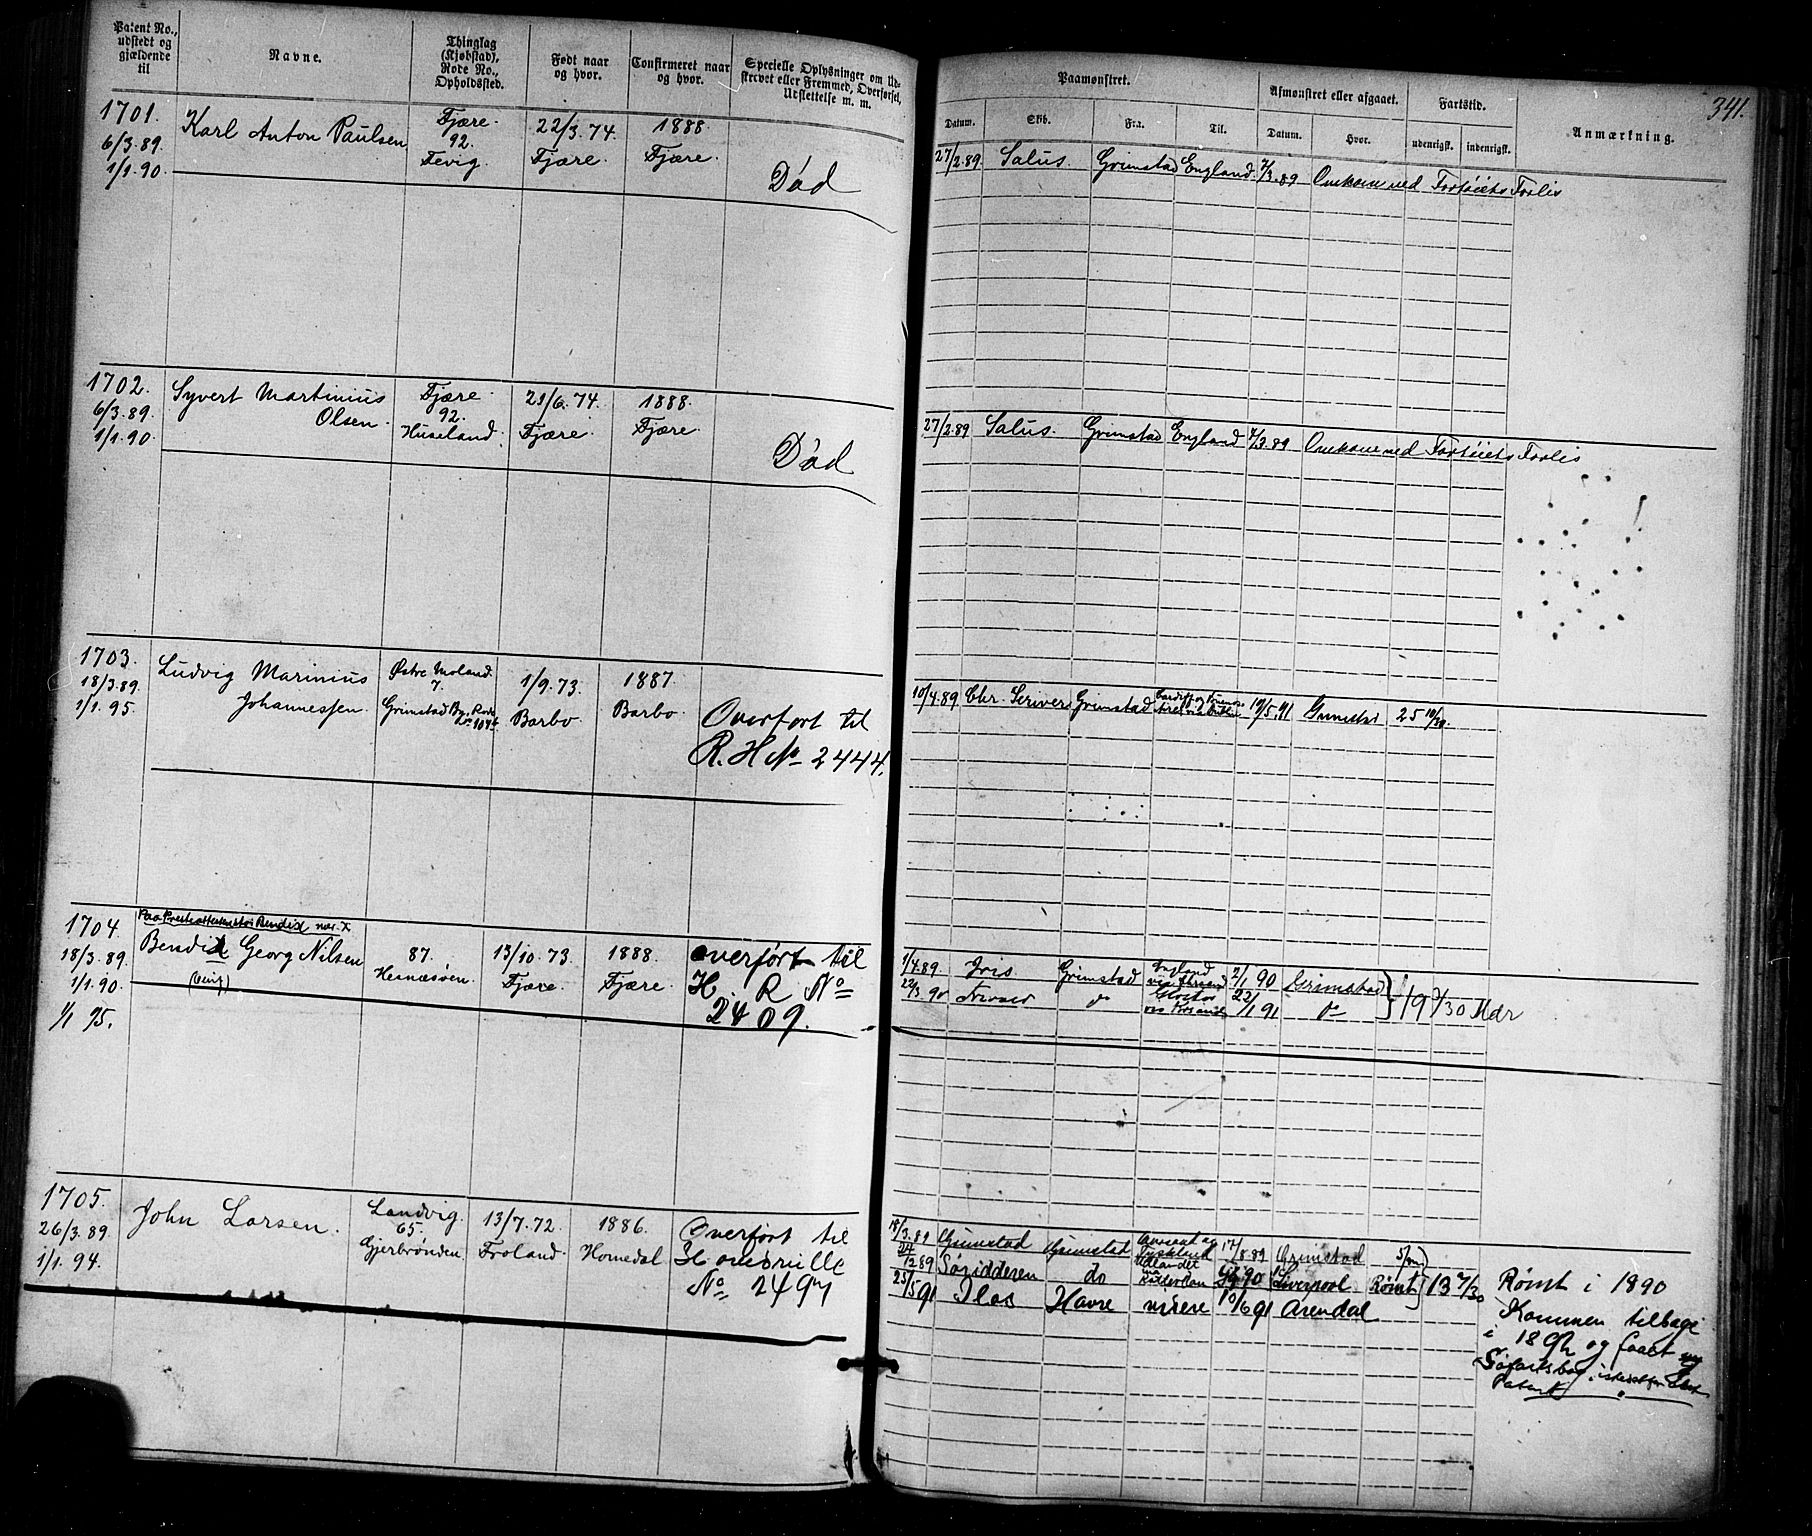 Patent No., udstedt og gjældende til
Navne.
Thinglag (Kjøbstad), Rode No., Opholdssted.
Født naar og hvor.
Confirmeret naar og hvor.
Specielle Oplysninger om Ud-
strevet eller Fremmed, Overførsel,
Udslettelse m. m.
Paamønstret.
Afmønstret eller afgaaet.
Fartstid.
Anmærkning.
341.
Datum.
Skib.
Fra.
Til.
Datum.
Hvor.
udenrigsk.
indenrigsk.
1701.
6/3.89.
1/1.90.
Karl Anton Paulsen
Fjære.
92.
Fevig.
22/3.74.
Fjære.
1888.
Fjære.
Død
27/2.89. Salus. Grimstad England 7/3.89 Omkom ved Fartøiets Forlis
1702.
6/3.89.
1/1.90.
Syvert Martinius
Olsen.
Fjære.
92.
Huseland.
21/6.74.
Fjære.
1888.
Fjære.
Død
27/2.89 Salus. Grimstad England 7/3.89 Omkom ved Fartøiets Forlis
1703.
18/3.89.
1/1.95.
Ludvig Marinius
Johannessen.
Østre Moland.
7.
Grimstad By, Rode
1/9.73.
Barbo
1887.
Barbo.
Overført til
R. H No 2444.
10/4.89 Chr. Scriver Grimstad 19/5.91 Grimstad 25 10/30.
1704.
18/3.89.
1/1.90.
1/1 95.
Paa Presteattesten staar Bendix
Bendix Georg Nilsen
87.
Hesnæsøen.
13/10.73.
Fjære.
1888.
Fjære.
overført til
H. R No
2409.
1/4.89. Iris Grimstad England 2/1 90 Grimstad
22/3 90 do 22/1 91 do
19 9/30 Mdr
1705.
26/3.89.
1/1.94.
John Larsen.
Landvig.
65.
Gjerbrønden
13/7.72.
Froland.
1886.
Homedal
Overført til
Hovedrulle
No. 2497
18/3.89 Grimstad Grimstad 17/8.89 Grimstad
24/12 89 Søridderen do Udlandet 90 Liverpool Rømt 13 7/30
25/5 91 Ilos Havre videre 10/6 91 Arendal
Rømt i 1890
Kommen tilbage
i 1892 og faaet ny
Søfartsbog istedetfor
Patent